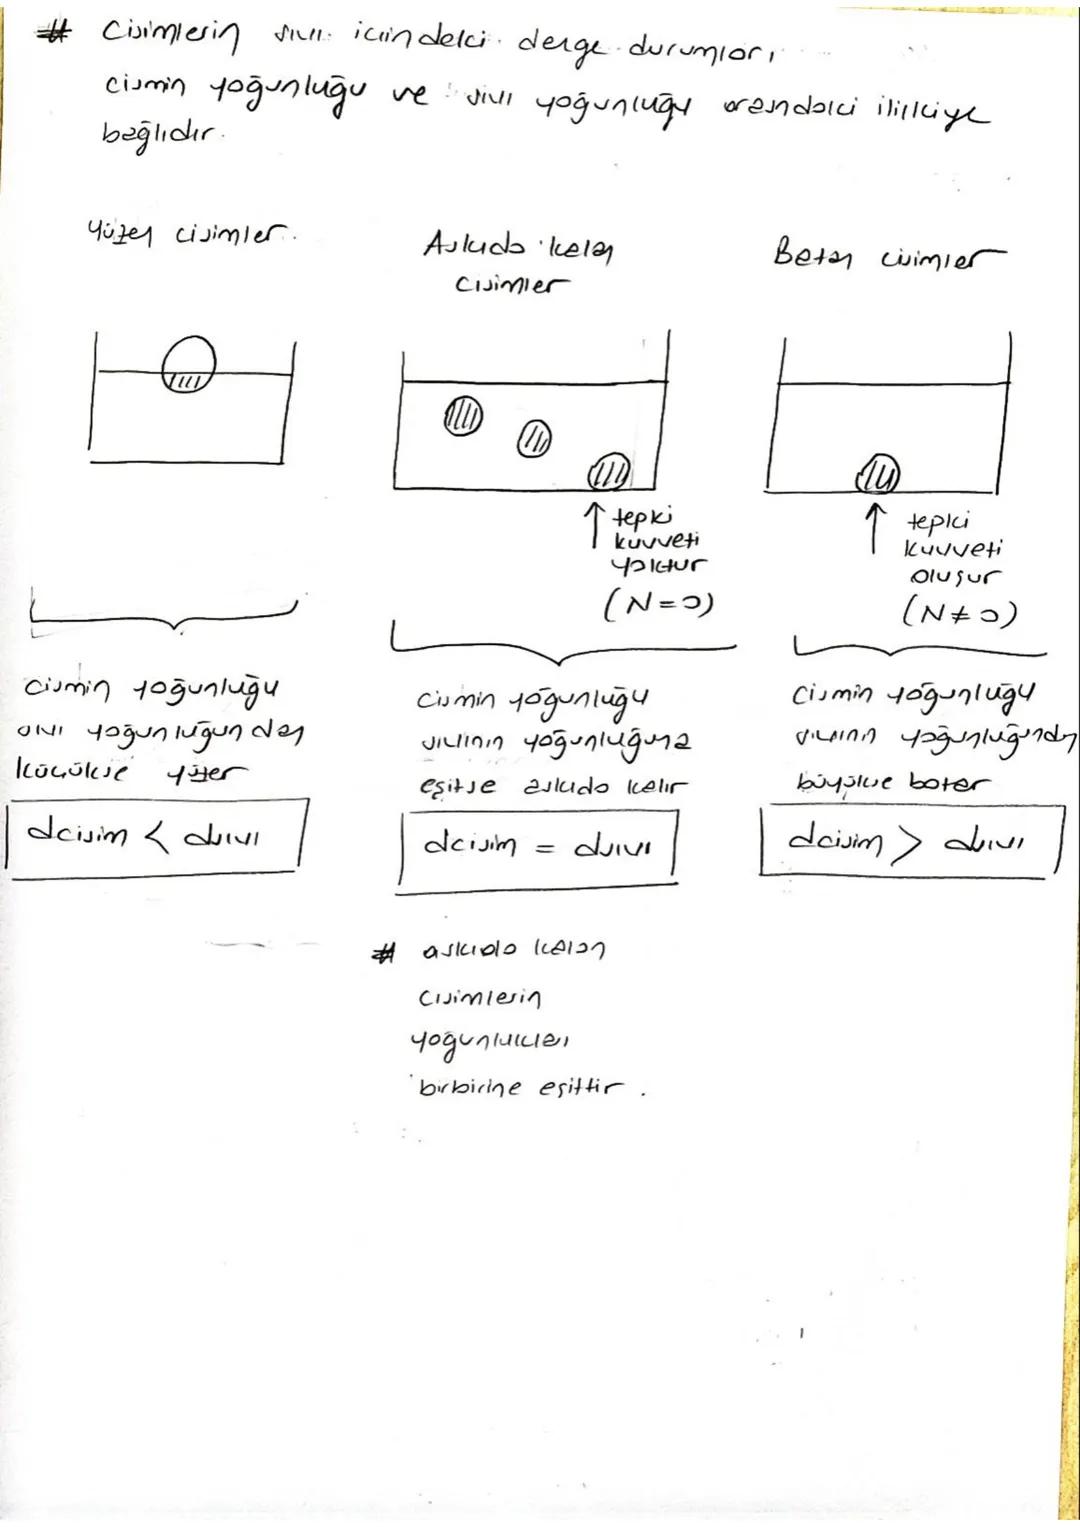 # Cisimlerin sıvı içindeki denge durumları,
cismin yoğunluğu ve sıvı yoğunluğu arasındaki ilişkiye
bağlıdır.
Yüzen cisimler.
Askıda kalan
cisimler
Batan cisimler
tepki
kuvveti
yoktur
(N=0)
tepki
kuvveti
oluşur
(N≠0)
cismin yoğunluğu
sıvı yoğunluğundan
küçükse yüzer
dcisim < dsıvı
cismin yoğunluğu
sıvının yoğunluğuna
eşitse askıda kalır
dcisim = dsıvı
cismin yoğunluğu
sıvının yoğunluğundan
büyükse batar
dcisim > dsıvı
# askıda kalan
cisimlerin
yoğunlukları
birbirine eşittir.